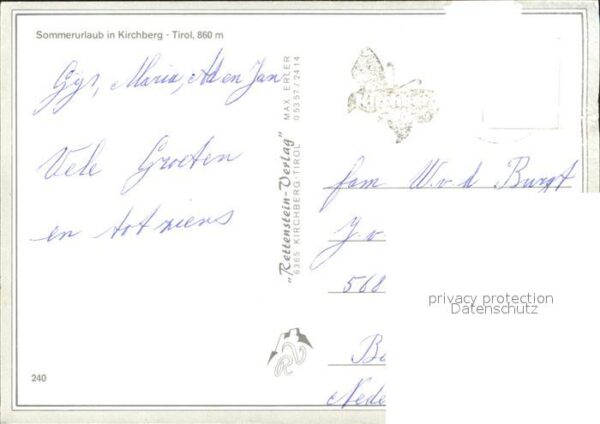 Sommerurlaub in Kirchberg - Tirol, 860 m
Gijs, Maria, Ad en Jan
Vele Groeten
en tot ziens
"Rettenstein-Verlag" MAX ERLER
6365 KIRCHBERG-TIROL 05357/2414
RV
240
fam W.v.d Burgt
J.v
568
B
Nede
privacy protection
Datenschutz